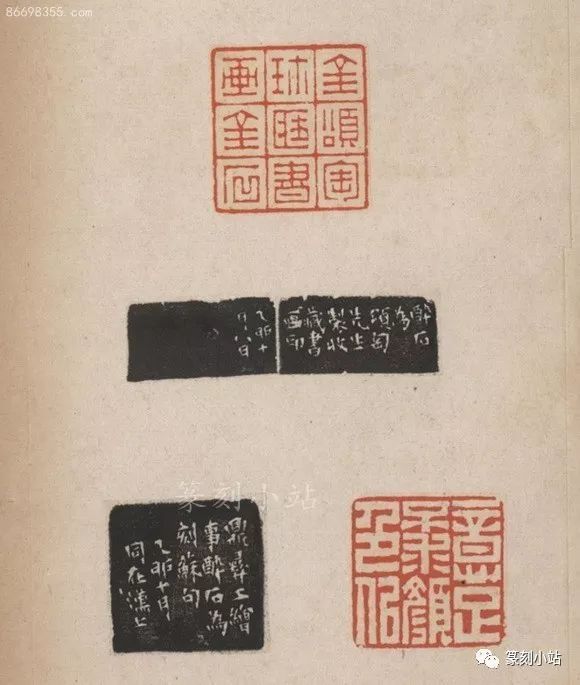 86698355.com
金頌匋
匯書
畫金石
醉石
為
頌匋
先生
製收
藏書
畫印
乙卯十
月八日
篆刻小站
鼎彝工繪
事醉石為
刻蘇句
乙卯十月
同在上
意足
不求顏
色似
篆刻小站